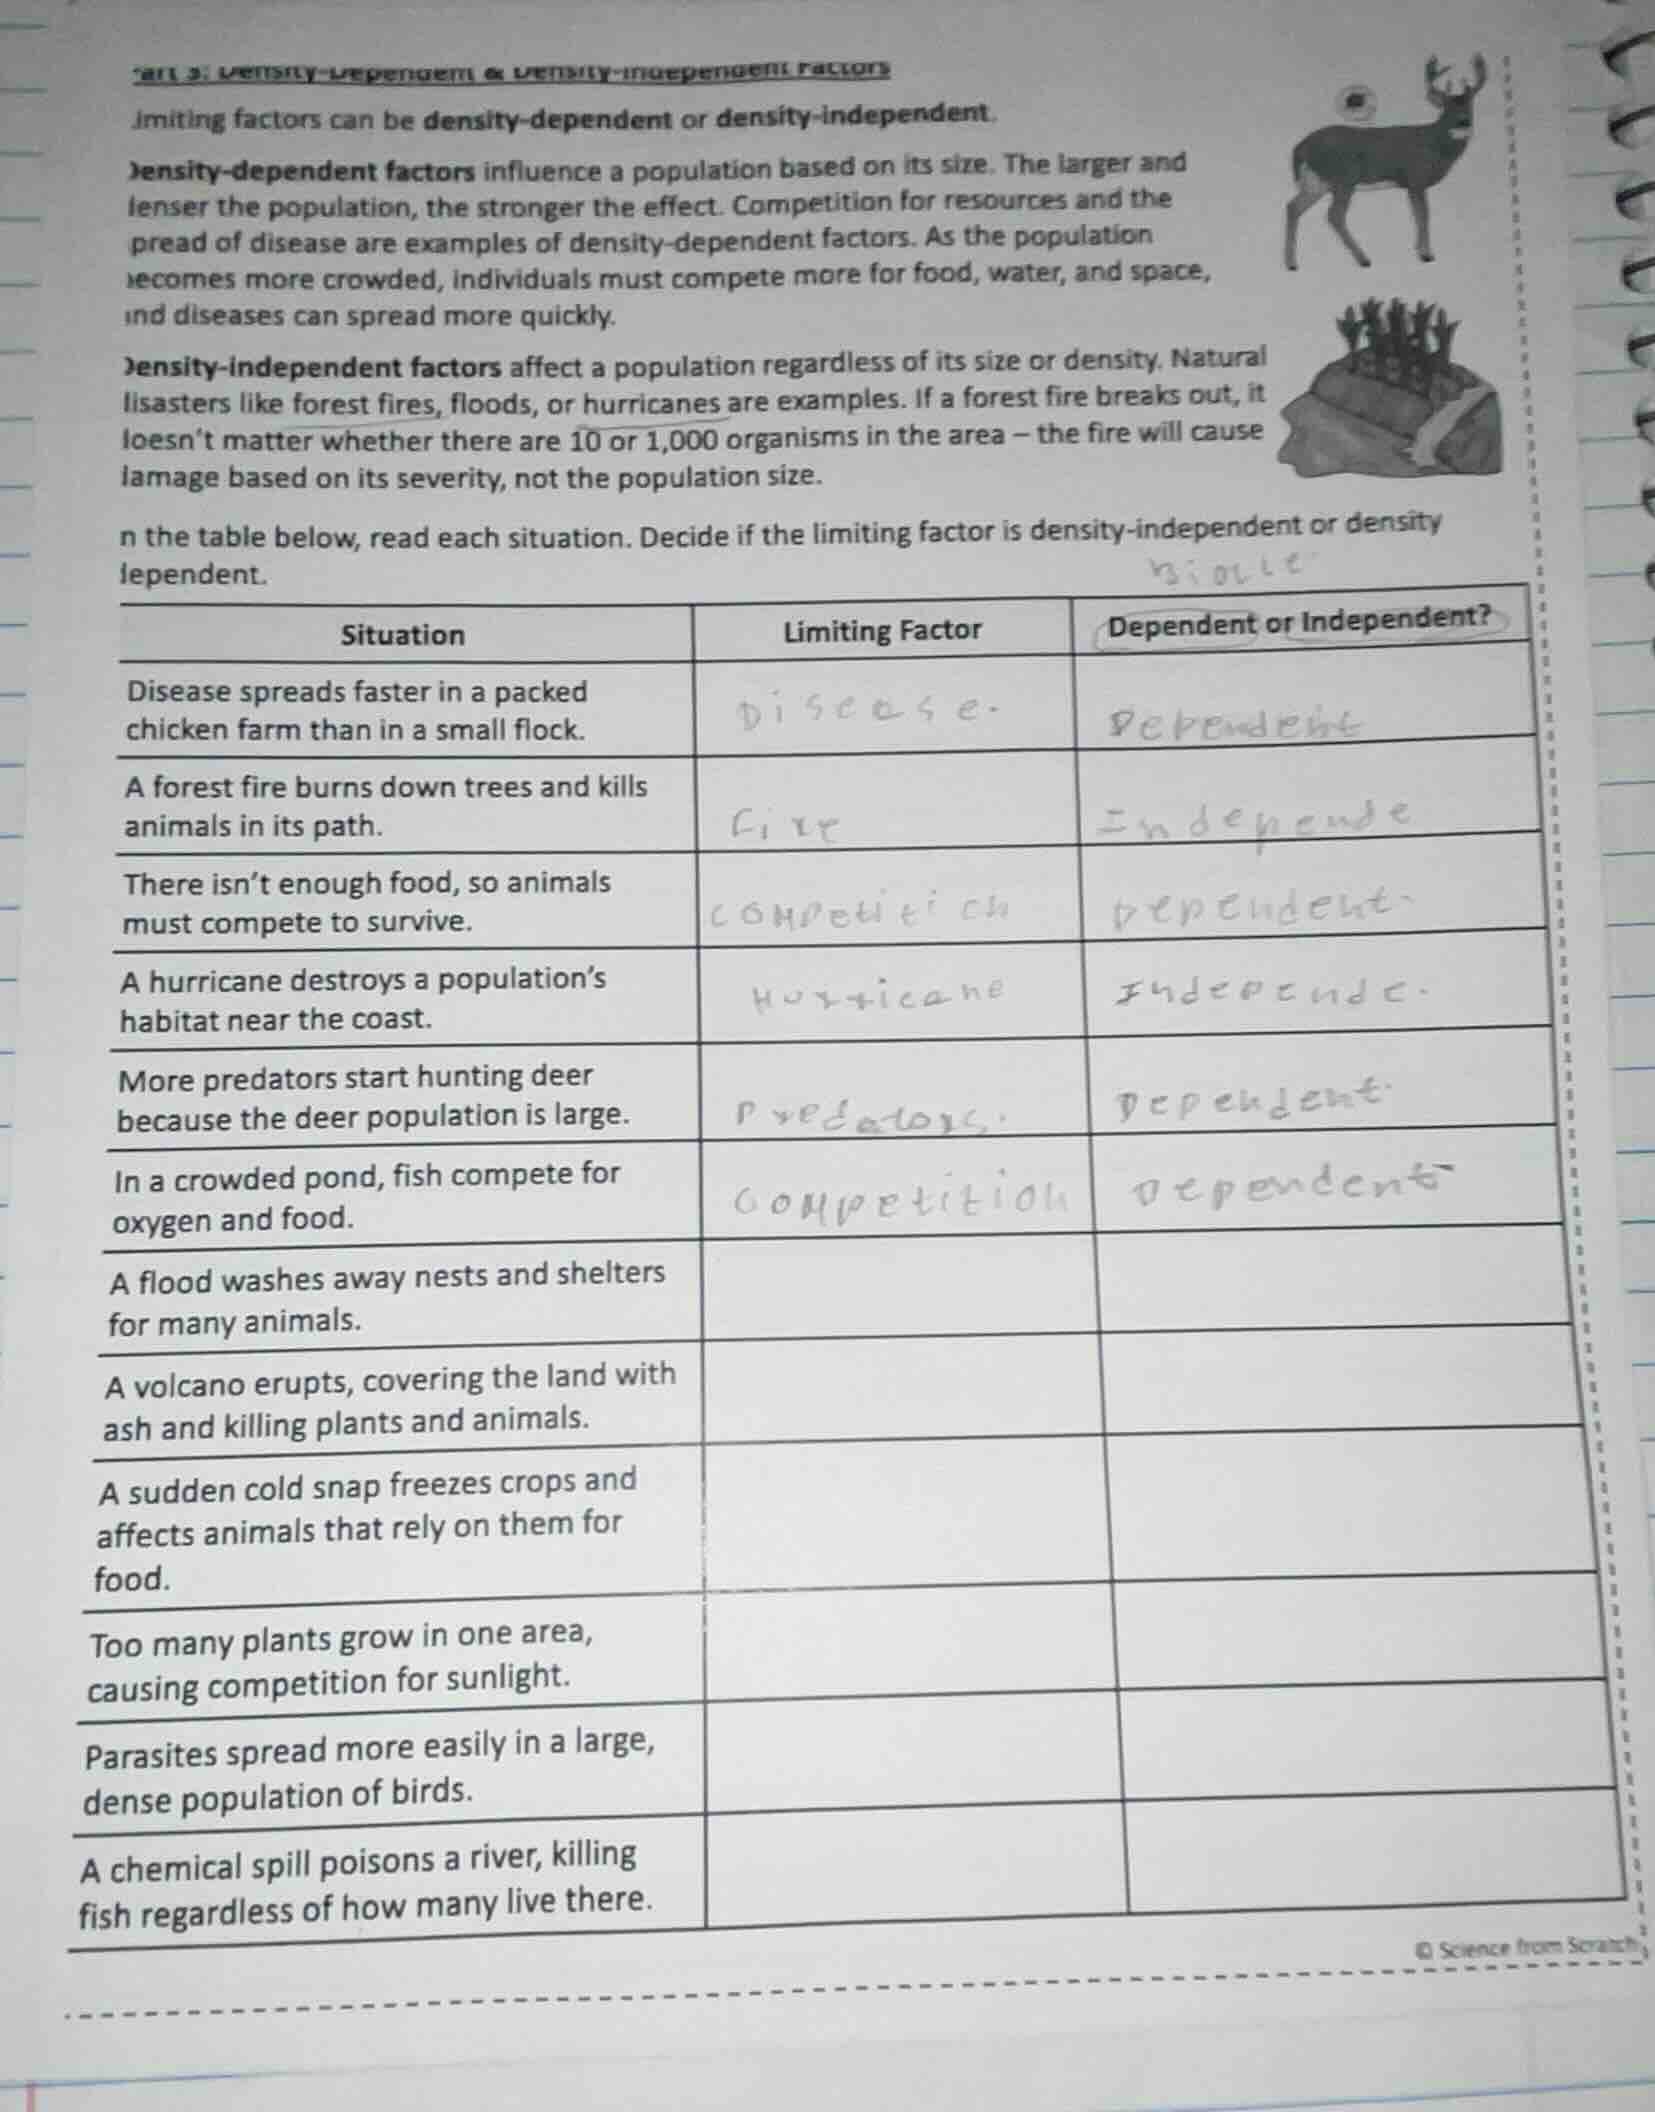 art 3: Density-Dependent & Density-Independent Factors
imiting factors can be density-dependent or density-independent.
ensity-dependent factors influence a population based on its size. The larger and
enser the population, the stronger the effect. Competition for resources and the
pread of disease are examples of density-dependent factors. As the population
ecomes more crowded, individuals must compete more for food, water, and space,
nd diseases can spread more quickly.
ensity-independent factors affect a population regardless of its size or density. Natural
isasters like forest fires, floods, or hurricanes are examples. If a forest fire breaks out, it
oesn't matter whether there are 10 or 1,000 organisms in the area – the fire will cause
amage based on its severity, not the population size.
n the table below, read each situation. Decide if the limiting factor is density-independent or density
ependent.
Situation Limiting Factor Dependent or Independent?
Disease spreads faster in a packed
chicken farm than in a small flock.
Disease. Dependent
A forest fire burns down trees and kills
animals in its path.
Fire Independe
There isn't enough food, so animals
must compete to survive.
competitich Dependent.
A hurricane destroys a population's
habitat near the coast.
Hurricane Independe.
More predators start hunting deer
because the deer population is large.
Predators. Dependent.
In a crowded pond, fish compete for
oxygen and food.
Competition Dependent
A flood washes away nests and shelters
for many animals.
A volcano erupts, covering the land with
ash and killing plants and animals.
A sudden cold snap freezes crops and
affects animals that rely on them for
food.
Too many plants grow in one area,
causing competition for sunlight.
Parasites spread more easily in a large,
dense population of birds.
A chemical spill poisons a river, killing
fish regardless of how many live there.
© Science from Scratch